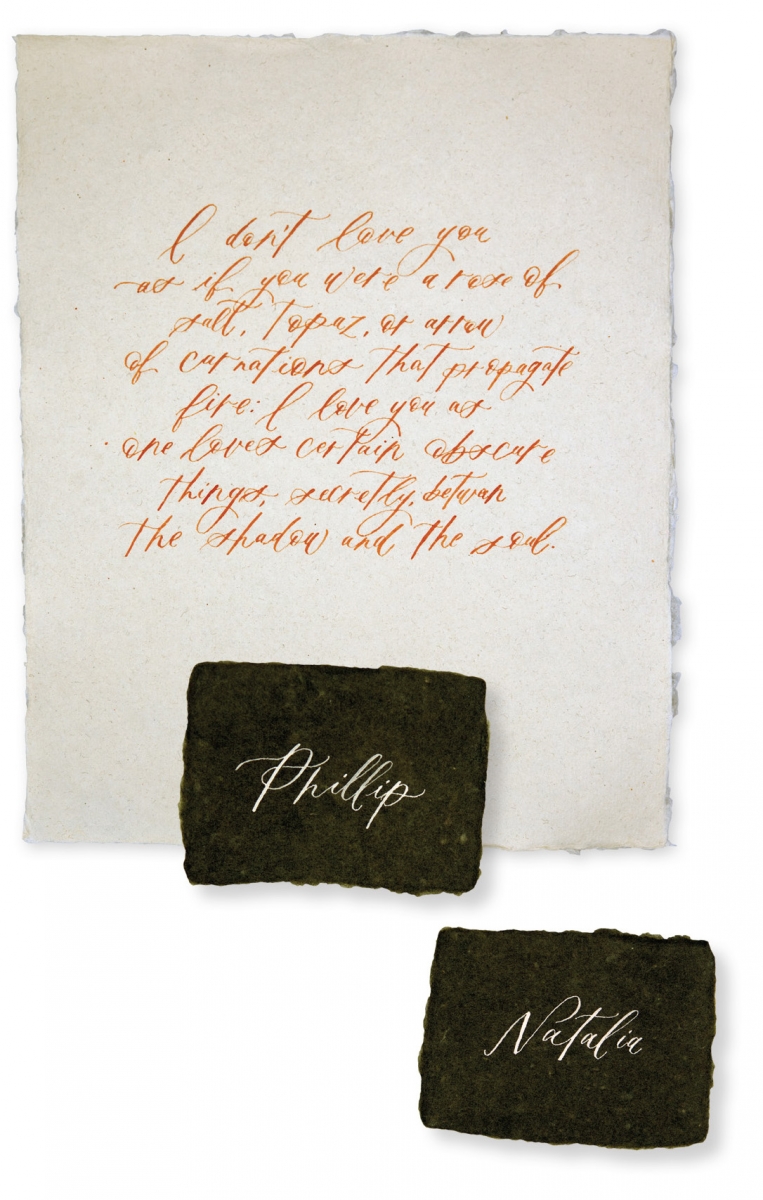 I don't love you
as if you were a rose of
salt, topaz, or arrow
of carnations that propagate
fire: I love you as
one loves certain obscure
things, secretly, between
the shadow and the soul.
Phillip
Natalia